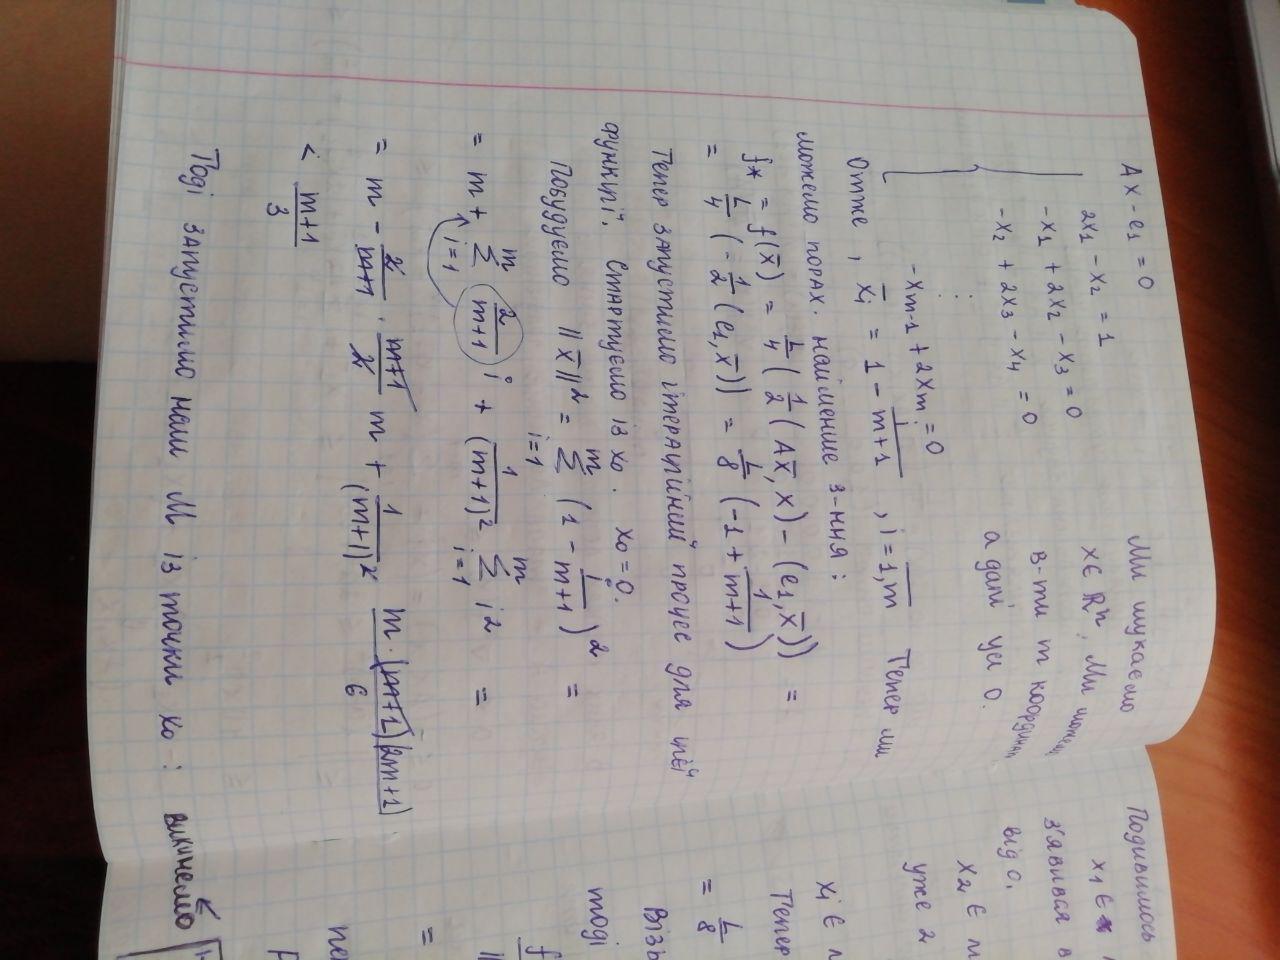 Ax - e₁ = 0
2x₁ - x₂ = 1
-x₁ + 2x₂ - x₃ = 0
-x₂ + 2x₃ - x₄ = 0
⋮
-xₘ₋₁ + 2xₘ = 0
Ми шукаємо
x ∈ ℝⁿ. Ми можемо
в-ти m координат
а далі усі 0.
Отже, x̄ᵢ = 1 - i/(m+1), i = 1,m Тепер ми
можемо порах. найменше з-ння:
f* = f(x̄) = L/4 (1/2 (Ax̄, x) - (e₁, x̄)) =
= L/4 (-1/2 (e₁, x̄)) = L/8 (-1 + 1/(m+1))
Тепер запустимо ітераційний процес для цієї
функції. Стартуємо із x₀. x₀ = 0.
Побудуємо ||x̄||² = Σᵢ₌₁ᵐ (1 - i/(m+1))² =
= m + Σᵢ₌₁ᵐ 2/(m+1) i + 1/(m+1)² Σᵢ₌₁ᵐ i² =
= m - 2/(m+1) · (m+1)/2 m + 1/(m+1)² m·(m+1)(2m+1)/6
< (m+1)/3
Тоді запустимо наш M із точки x₀: викинемо
Подивимось
x₁ ∈
з'явився в
від 0.
x₂ ∈
уже 2
xᵢ ∈
Тепер
= L/8
тоді
=